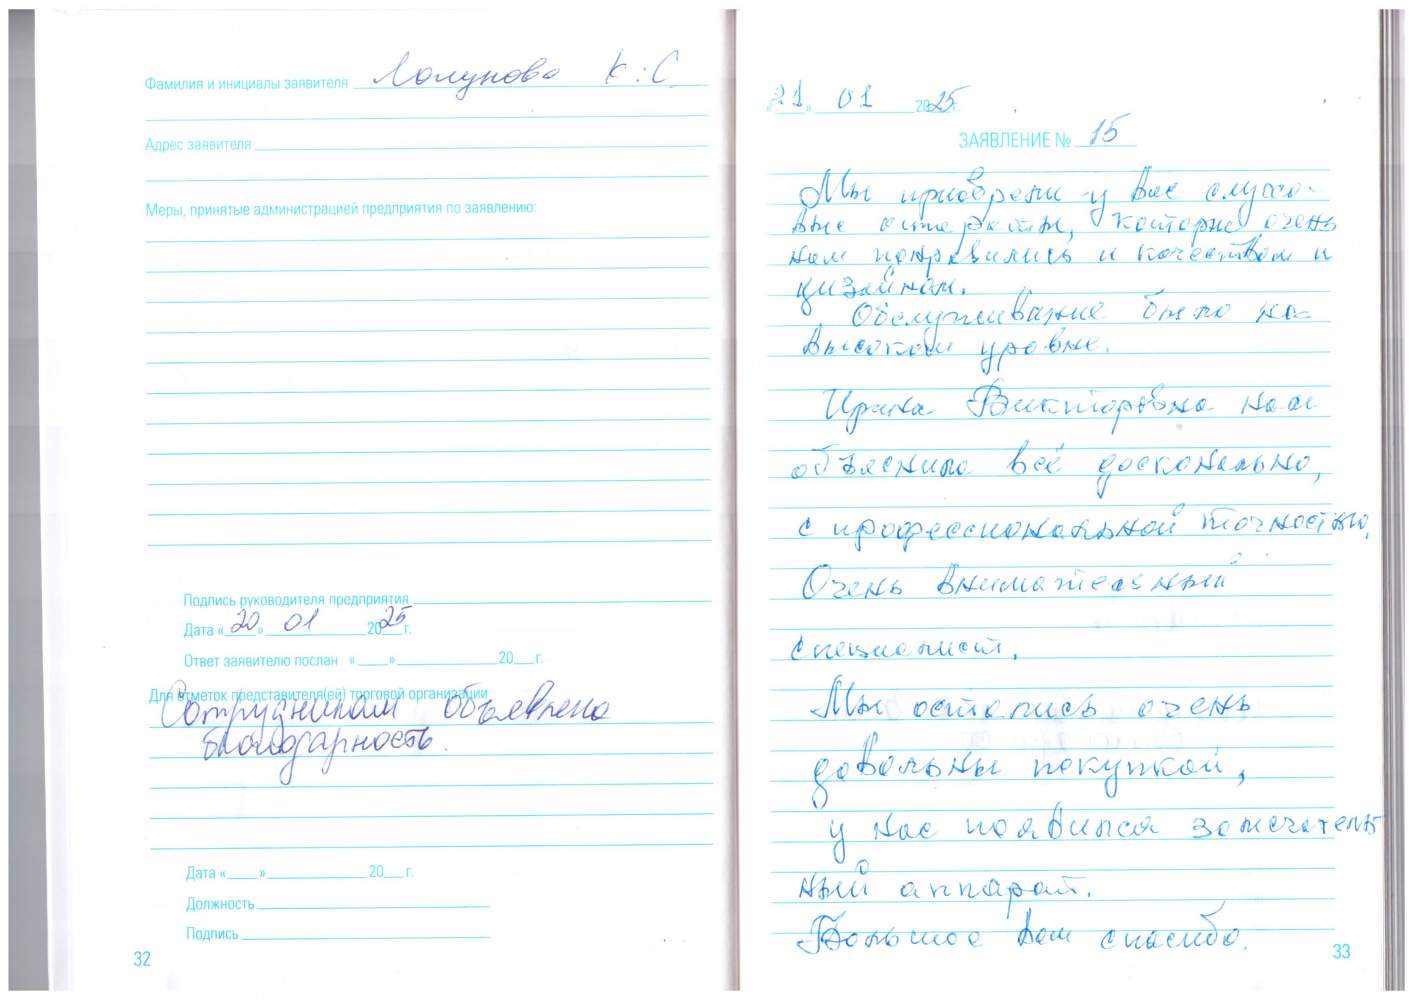 Фамилия и инициалы заявителя К.С.
Адрес заявителя
Меры, принятые администрацией предприятия по заявлению:
Подпись руководителя предприятия
Дата «20» 01 2025 г.
Ответ заявителю послан « » 20 г.
Для отметок представителя(ей) торговой организации
Сотрудникам объявлена
благодарность.
Дата « » 20 г.
Должность
Подпись
32
«21» 01 2025 г.
ЗАЯВЛЕНИЕ № 15
Мы приобрели у вас слухо-
вые аппараты, которые очень
нам понравились и качеством и
дизайном.
Обслуживание было на
высоком уровне.
Ирина Викторовна нам
объяснила всё досконально,
с профессиональной точностью.
Очень внимательный
специалист.
Мы остались очень
довольны покупкой,
у нас появился замечатель
ный аппарат.
Большое вам спасибо.
33